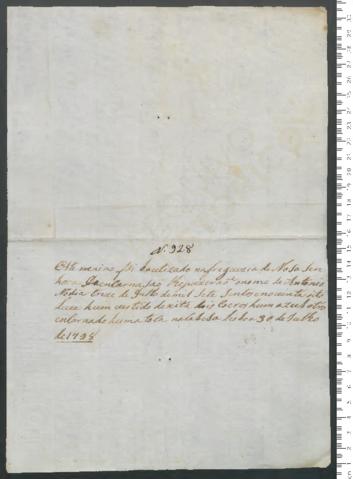 N. 928
Este menino foi bautizado na freguezia de Nosa Sen
hora da encarnasão o nome de Antonio
No dia treze de Julho de mil Sete Sentos e noventa e oito
leva hum vestido de xita dois hum azul otro
encarnado huma na cabesa Lisboa 30 de Julho
de 1798